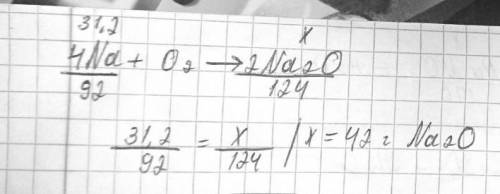 31,2 x
4Na + O₂ → 2Na₂O
92 124
31,2 / 92 = x / 124 / x = 42 г Na₂O